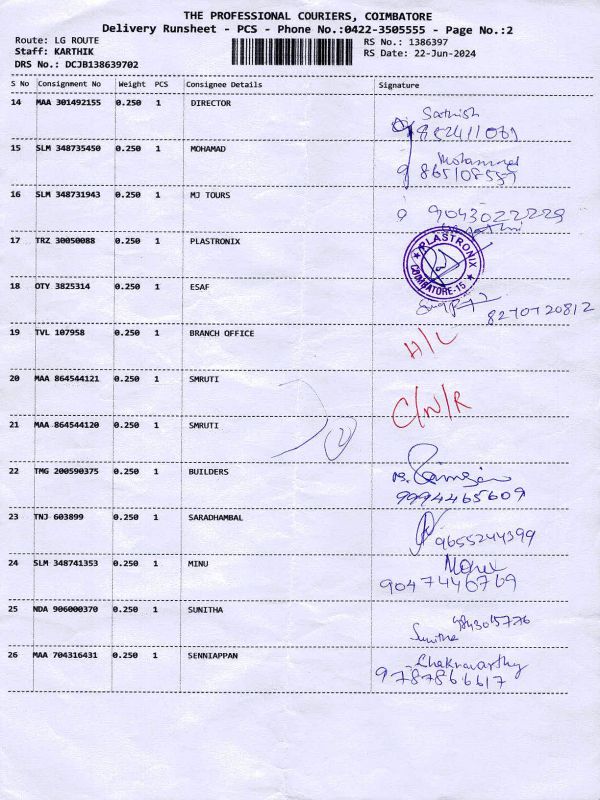 THE PROFESSIONAL COURIERS, COIMBATORE
Delivery Runsheet - PCS - Phone No.:0422-3505555 - Page No.:2
Route: LG ROUTE
Staff: KARTHIK
DRS No.: DCJB138639702
RS No.: 1386397
RS Date: 22-Jun-2024
S No Consignment No Weight PCS Consignee Details Signature
14 MAA 301492155 0.250 1 DIRECTOR
Sathish
15 SLM 348735450 0.250 1 MOHAMAD
Mohammed
16 SLM 348731943 0.250 1 MJ TOURS
9043022229
17 TRZ 30050088 0.250 1 PLASTRONIX
PLASTRONIX
COIMBATORE-15
18 OTY 3825314 0.250 1 ESAF
8270720812
19 TVL 107958 0.250 1 BRANCH OFFICE
H/L
20 MAA 864544121 0.250 1 SMRUTI
C/N/R
21 MAA 864544120 0.250 1 SMRUTI
2
22 TMG 200590375 0.250 1 BUILDERS
9994465609
23 TNJ 603899 0.250 1 SARADHAMBAL
9655244399
24 SLM 348741353 0.250 1 MINU
9047446769
25 NDA 906000370 0.250 1 SUNITHA
Sunitha
26 MAA 704316431 0.250 1 SENNIAPPAN
Chakravarthy
9787866617